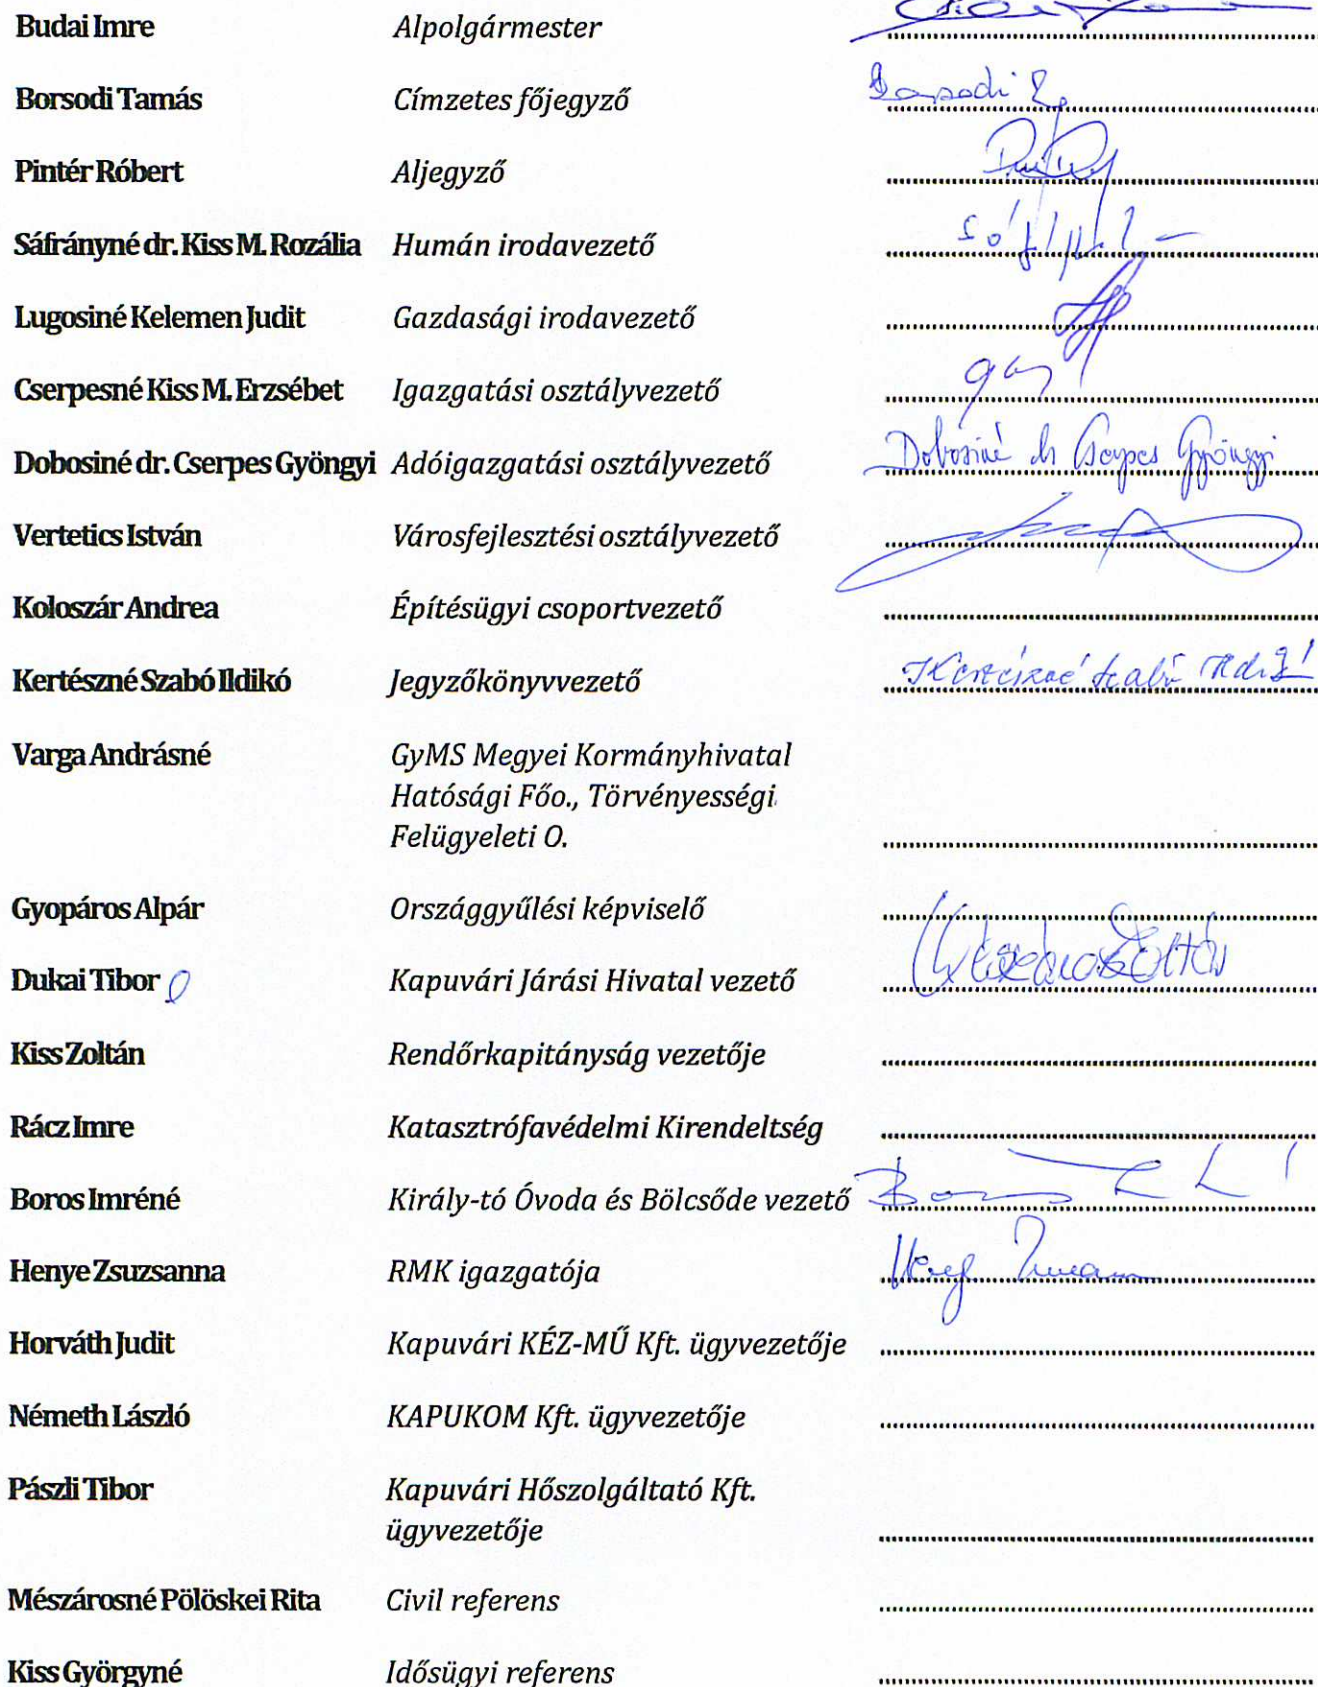 Budai Imre Alpolgármester
Borsodi Tamás Címzetes főjegyző Borsodi
Pintér Róbert Aljegyző
Sáfrányné dr. Kiss M. Rozália Humán irodavezető
Lugosiné Kelemen Judit Gazdasági irodavezető
Cserpesné Kiss M. Erzsébet Igazgatási osztályvezető
Dobosiné dr. Cserpes Gyöngyi Adóigazgatási osztályvezető Dobosiné dr Cserpes Gyöngyi
Vertetics István Városfejlesztési osztályvezető
Koloszár Andrea Építésügyi csoportvezető
Kertészné Szabó Ildikó Jegyzőkönyvvezető Kertészné Szabó Ildikó
Varga Andrásné GyMS Megyei Kormányhivatal
Hatósági Főo., Törvényességi
Felügyeleti O.
Gyopáros Alpár Országgyűlési képviselő
Dukai Tibor Kapuvári Járási Hivatal vezető Mészáros Zoltán
Kiss Zoltán Rendőrkapitányság vezetője
Rácz Imre Katasztrófavédelmi Kirendeltség
Boros Imréné Király-tó Óvoda és Bölcsőde vezető
Henye Zsuzsanna RMK igazgatója
Horváth Judit Kapuvári KÉZ-MŰ Kft. ügyvezetője
Németh László KAPUKOM Kft. ügyvezetője
Pászli Tibor Kapuvári Hőszolgáltató Kft.
ügyvezetője
Mészárosné Pölöskei Rita Civil referens
Kiss Györgyné Idősügyi referens